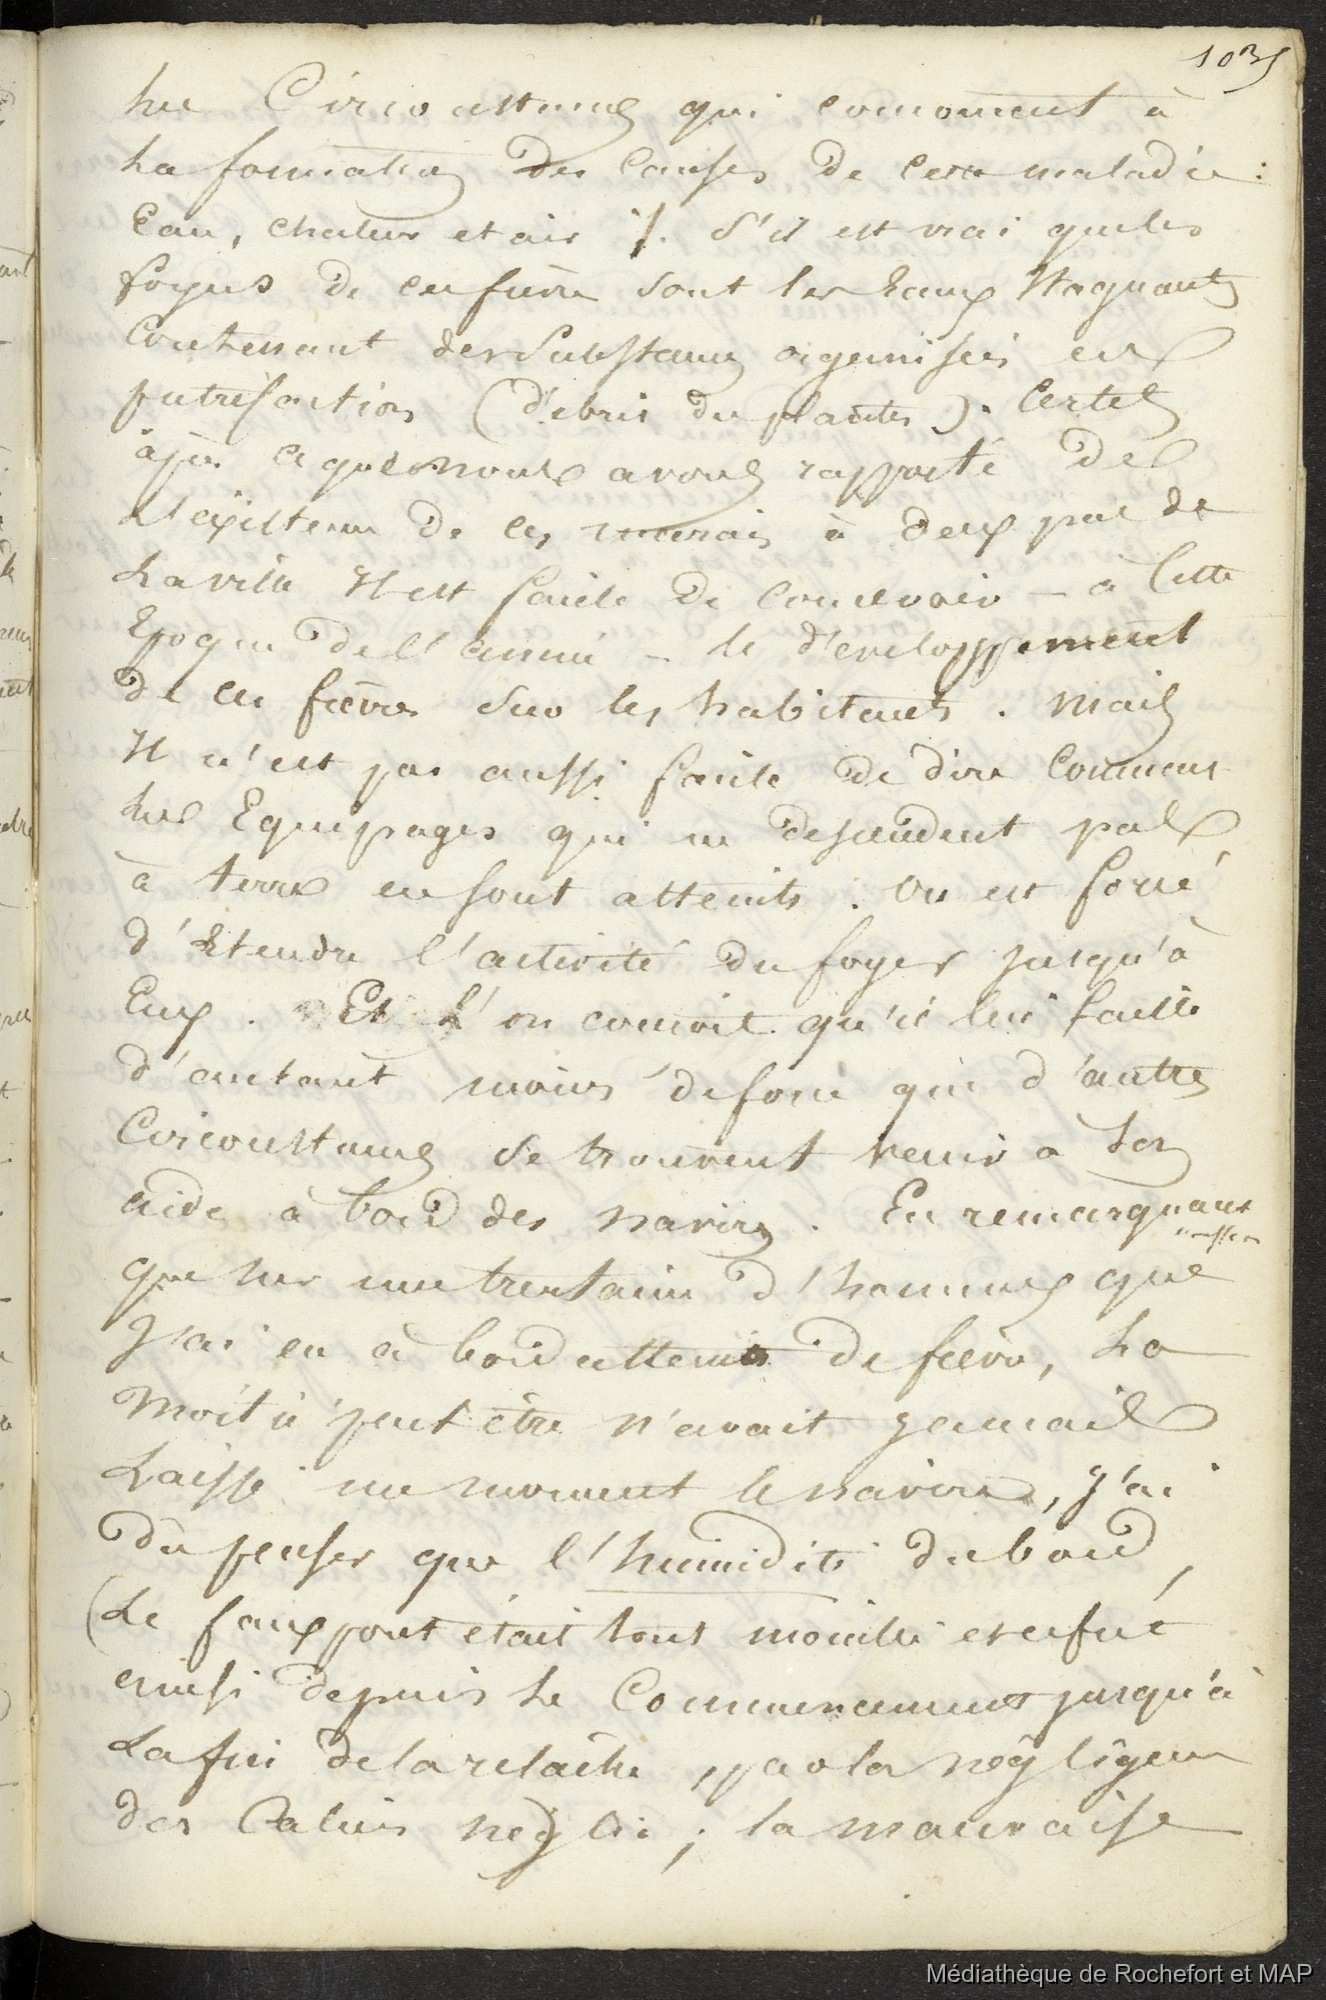 les Circonstances qui concourent à
la formation des causes de cette maladie :
Eau, chaleur et air . S'il est vrai que les
foyers de ces fièvres sont les Eaux stagnantes
Contenant des substances organisées en
putréfaction (débris de plantes ). Certes
après ce que nous avons rapporté de
l'existence de ces marais à deux pas de
la ville Il est facile de concevoir — à Cette
Epoque de l'année — le développement
de ces fièvres sur les habitants . Mais
Il n'est pas aussi facile de dire Comment
les Equipages qui ne descendent pas
à terre en sont atteints . On est forcé
d'Etendre l'activité du foyer jusqu'à
Eux . Et l'on conçoit qu'il lui faille
d'autant moins de force que d'autres
Circonstances se trouvent venir à son
aide à bord des navires . En remarquant
que sur une trentaine d'hommes que
J'ai eu à bord atteints de fièvre, la
Moitié peut être n'avait jamais
Laissé un moment le navire, J'ai
dû penser que l'humidité du bord,
(Le faux pont était tout mouillé et en fut
ainsi depuis le Commencement jusqu'à
La fin de la relâche , par la négligence
des Caliers ; la mauvaise
Médiathèque de Rochefort et MAP